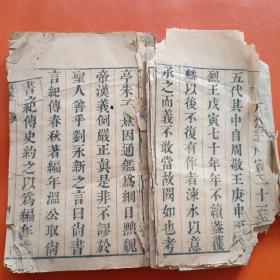 五代其中自周敬王庚申
烈王戊寅七十年不續蓋獲
麟以後不復有作者涑水以意
承之而義不敢當故闕如也考
亭朱子㷊因通鑑為綱目興魏
帝漢義例嚴正真是非不謬於
聖人曾乎劉永新之言曰尚書
言紀傳春秋著編年温公取尚
書紀傳史約之以為編年